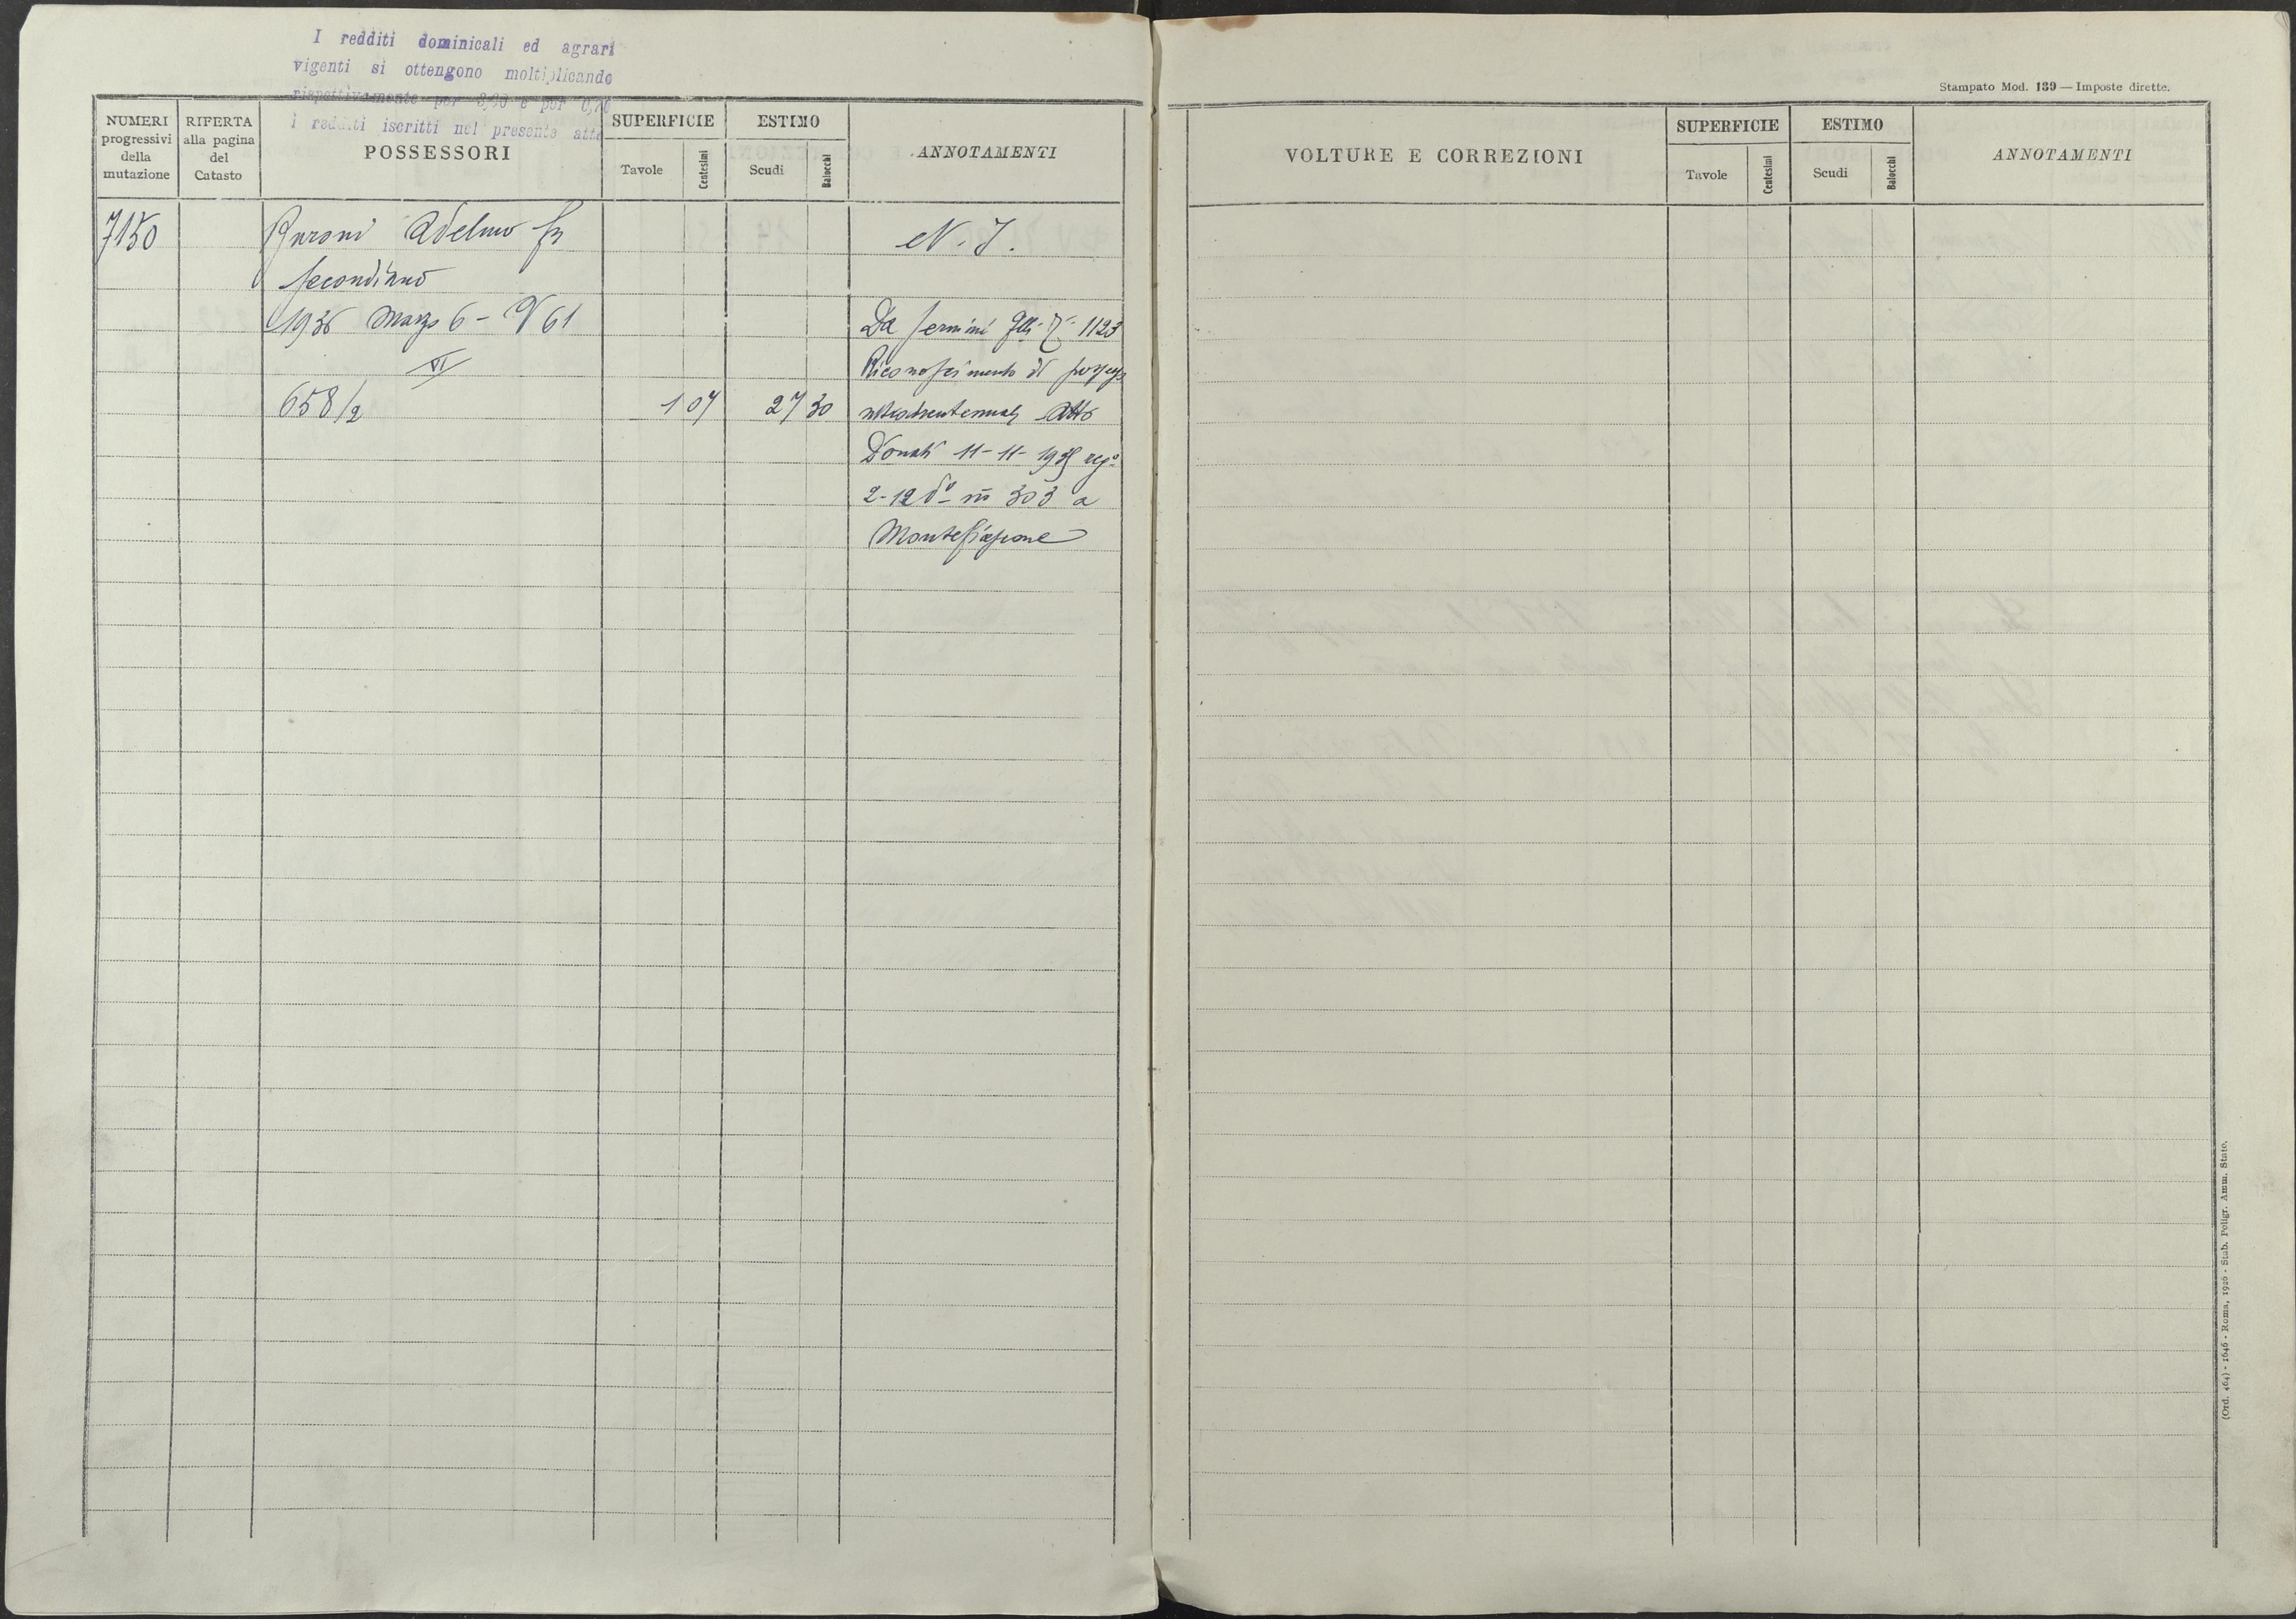 I redditi dominicali ed agrari
vigenti si ottengono moltiplicando
rispettivamente per e per
i redditi iscritti nel presente atto
NUMERI progressivi della mutazione
RIFERTA alla pagina del Catasto
POSSESSORI
SUPERFICIE
Tavole
Centesimi
ESTIMO
Scudi
Baiocchi
ANNOTAMENTI
7150
Adelmo fu
Secondiano
N. I.
1936 Marzo 6 - V 61
Da 1123
VI
Riconoscimento di
658/2
1 07
27 30
Atto
Donati 11-11-1935 reg.º
2-12 dº n 303 a
Montefiascone
Stampato Mod. 139 — Imposte dirette.
VOLTURE E CORREZIONI
SUPERFICIE
Tavole
Centesimi
ESTIMO
Scudi
Baiocchi
ANNOTAMENTI
(Ord. 464) - 1646 - Roma, 1926 - Stab. Poligr. Amm. Stato.